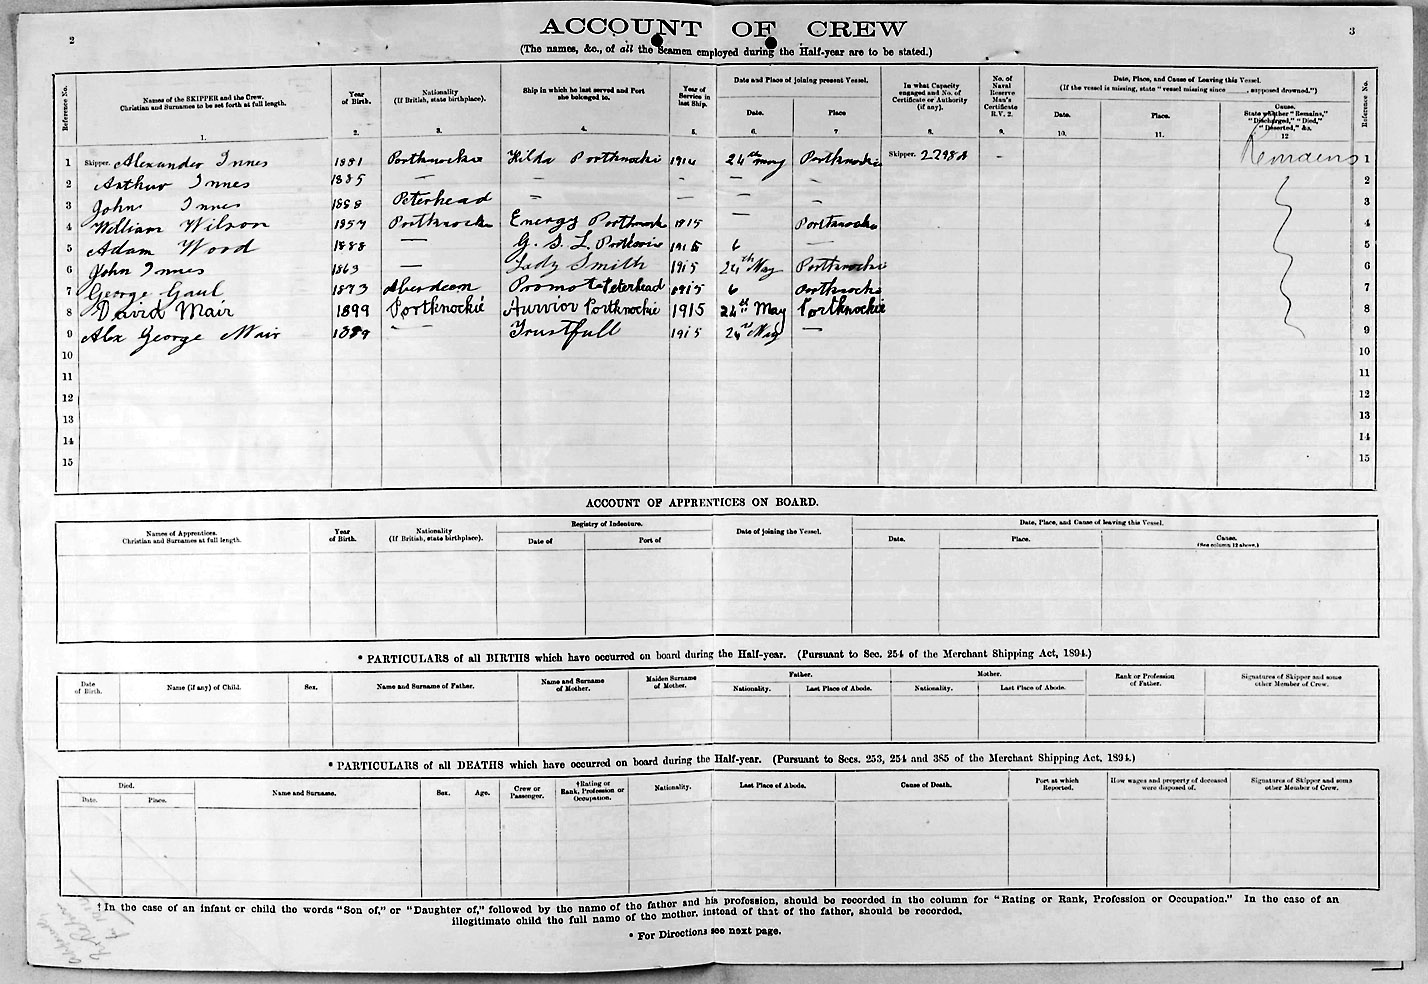 2
ACCOUNT OF CREW
3
(The names, &c., of all the Seamen employed during the Half-year are to be stated.)
Reference No.
Names of the SKIPPER and the Crew.
Christian and Surnames to be set forth at full length.
1.
Year
of Birth.
2.
Nationality
(If British, state birthplace).
3.
Ship in which he last served and Port
she belonged to.
4.
Year of
Service in
last Ship.
5.
Date and Place of joining present Vessel.
Date.
6.
Place
7
In what Capacity
engaged and No. of
Certificate or Authority
(if any).
8.
No. of
Naval
Reserve
Man's
Certificate
R.V. 2.
9.
Date, Place, and Cause of Leaving this Vessel.
(If the vessel is missing, state " vessel missing since ______, supposed drowned.")
Date.
10.
Place.
11.
Cause.
State whether "Remains,"
"Discharged," "Died,"
"Deserted," &c.
12
Reference No.
1 Skipper. Alexander Innes 1881 Portknockie Hilda Portknockie 1914 24th May Portknockie Skipper. 2298A - Remains 1
2 Arthur Innes 1885 — — — — 2
3 John Innes 1888 Peterhead — — — 3
4 William Wilson 1857 Portknockie Energy Portknockie 1915 — Portknockie 4
5 Adam Wood 1888 — G. S. L. 1915 6 — 5
6 John Innes 1863 — Lady Smith 1915 24th May Portknockie 6
7 George Gaul 1873 Aberdeen Promote Peterhead 1915 6 Portknockie 7
8 David Mair 1899 Portknockie Portknockie 1915 24th May Portknockie 8
9 Alex George Mair 1889 — — Trustfull 1915 24th May — 9
10 10
11 11
12 12
13 13
14 14
15 15
ACCOUNT OF APPRENTICES ON BOARD.
Names of Apprentices.
Christian and Surnames at full length.
Year
of Birth.
Nationality
(If British, state birthplace).
Registry of Indenture.
Date of
Port of
Date of joining the Vessel.
Date, Place, and Cause of leaving this Vessel.
Date.
Place.
Cause.
(See column 12 above.)
* PARTICULARS of all BIRTHS which have occurred on board during the Half-year. (Pursuant to Sec. 254 of the Merchant Shipping Act, 1894.)
Date
of Birth.
Name (if any) of Child.
Sex.
Name and Surname of Father.
Name and Surname
of Mother.
Maiden Surname
of Mother.
Father.
Nationality.
Last Place of Abode.
Mother.
Nationality.
Last Place of Abode.
Rank or Profession
of Father.
Signatures of Skipper and some
other Member of Crew.
* PARTICULARS of all DEATHS which have occurred on board during the Half-year. (Pursuant to Secs. 253, 254 and 385 of the Merchant Shipping Act, 1894.)
Died.
Date.
Place.
Name and Surname.
Sex.
Age.
Crew or
Passenger.
†Rating or
Rank, Profession or
Occupation.
Nationality.
Last Place of Abode.
Cause of Death.
Port at which
Reported.
How wages and property of deceased
were disposed of.
Signatures of Skipper and some
other Member of Crew.
† In the case of an infant or child the words "Son of," or "Daughter of," followed by the name of the father and his profession, should be recorded in the column for "Rating or Rank, Profession or Occupation." In the case of an
illegitimate child the full name of the mother, instead of that of the father, should be recorded.
* For Directions see next page.